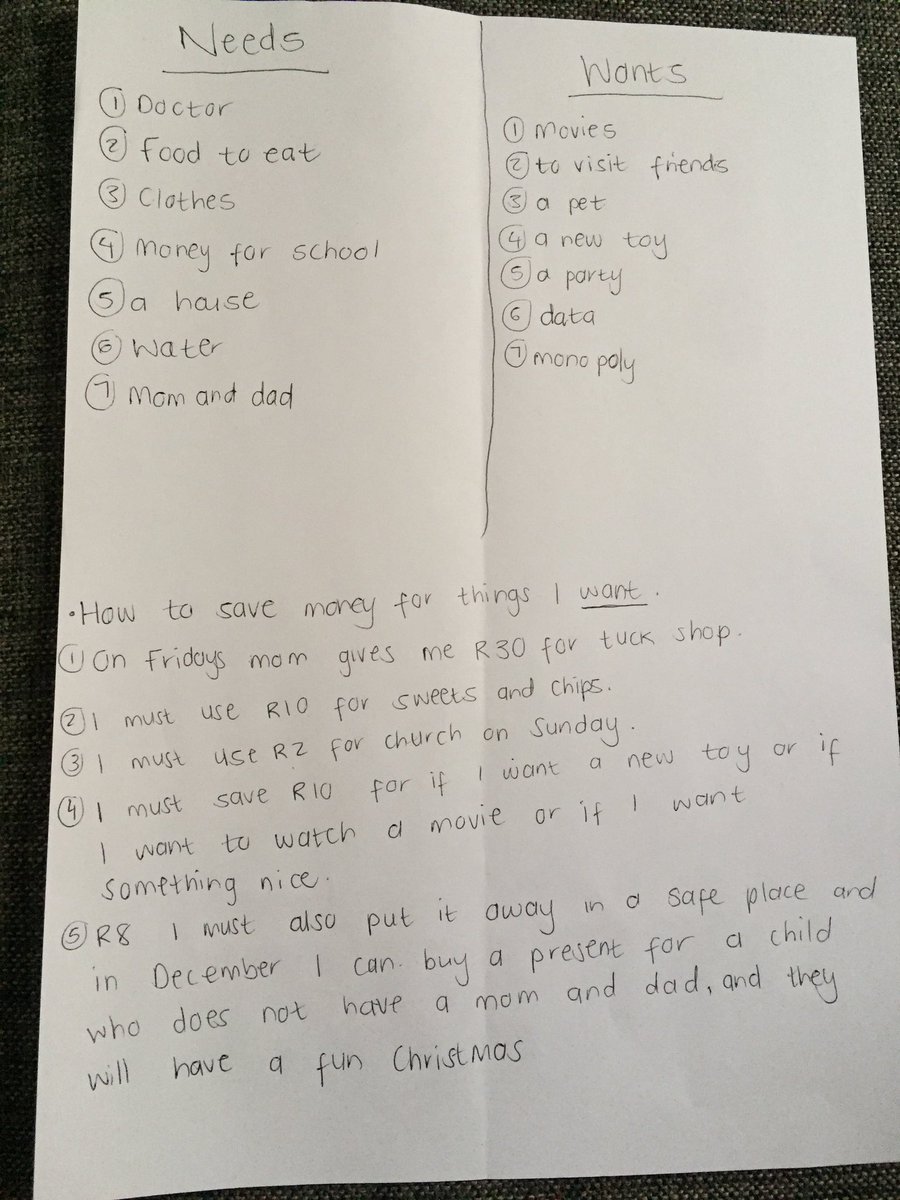 Needs
① Doctor
② food to eat
③ Clothes
④ Money for school
⑤ a house
⑥ Water
⑦ Mom and dad
Wants
① movies
② to visit friends
③ a pet
④ a new toy
⑤ a party
⑥ data
⑦ monopoly
• How to save money for things I want.
① On Fridays mom gives me R30 for tuck shop.
② I must use R10 for sweets and chips.
③ I must use R2 for church on Sunday.
④ I must save R10 for if I want a new toy or if
I want to watch a movie or if I want
something nice.
⑤ R8 I must also put it away in a safe place and
in December I can buy a present for a child
who does not have a mom and dad, and they
will have a fun Christmas